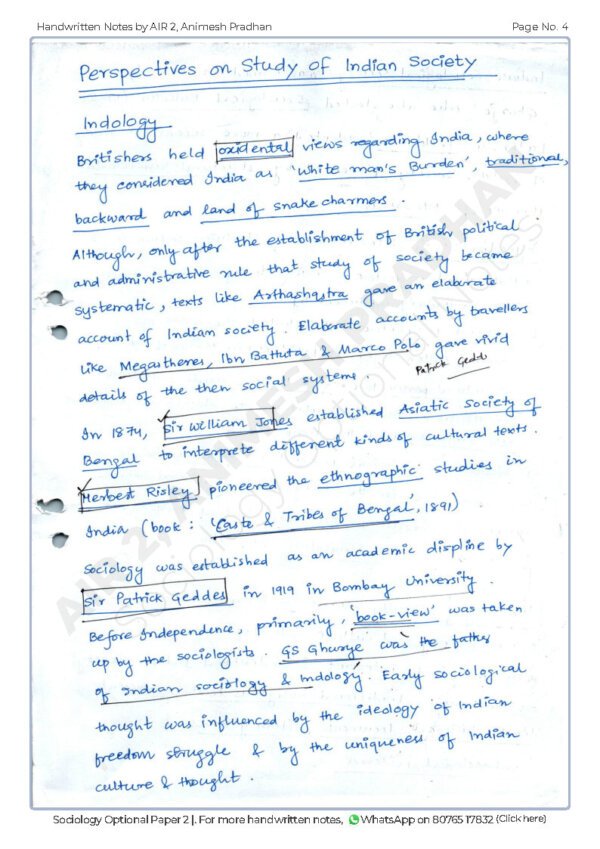 Handwritten Notes by AIR 2, Animesh Pradhan Page No. 4
Perspectives on Study of Indian Society
Indology
Britishers held oxidental views regarding India, where
they considered India as 'White man's Burden', traditional,
backward and land of snake charmers.
Although, only after the establishment of British political
and administrative rule that study of society became
systematic, texts like Arthashastra gave an elaborate
account of Indian society. Elaborate accounts by travellers
like Megasthenes, Ibn Battuta & Marco Polo gave vivid
Patrick Geddes
details of the then social systems.
In 1874, Sir William Jones established Asiatic Society of
Bengal to interpret different kinds of cultural texts.
Herbert Risley pioneered the ethnographic studies in
India (book: 'Caste & Tribes of Bengal', 1891)
Sociology was established as an academic displine by
Sir Patrick Geddes in 1919 in Bombay University.
Before Independence, primarily, 'book-view' was taken
up by the sociologists. GS Ghurye was the father
of Indian sociology & Indology. Early sociological
thought was influenced by the ideology of Indian
freedom struggle & by the uniqueness of Indian
culture & thought.
AIR 2, ANIMESH PRADHAN
Sociology Optional Notes
Sociology Optional Paper 2 |. For more handwritten notes, WhatsApp on 80765 17832 (Click here)